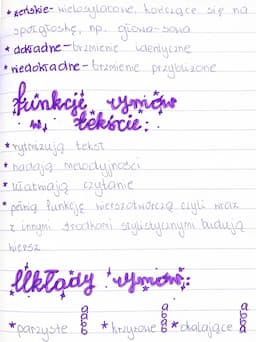 * żeńskie - wielosylabowe, kończące się na
spółgłoskę, np. głowa-sowa
* dokładne - brzmienie identyczne
* niedokładne - brzmienie przybliżone
funkcje rymów
w tekście:
* rytmizują tekst
* nadają melodyjności
* ułatwiają czytanie
* pełnią funkcję wierszotwórczą czyli wraz
z innymi środkami stylistycznymi budują
wiersz
Układy rymów:
* parzyste
* krzyżowe
* okalające